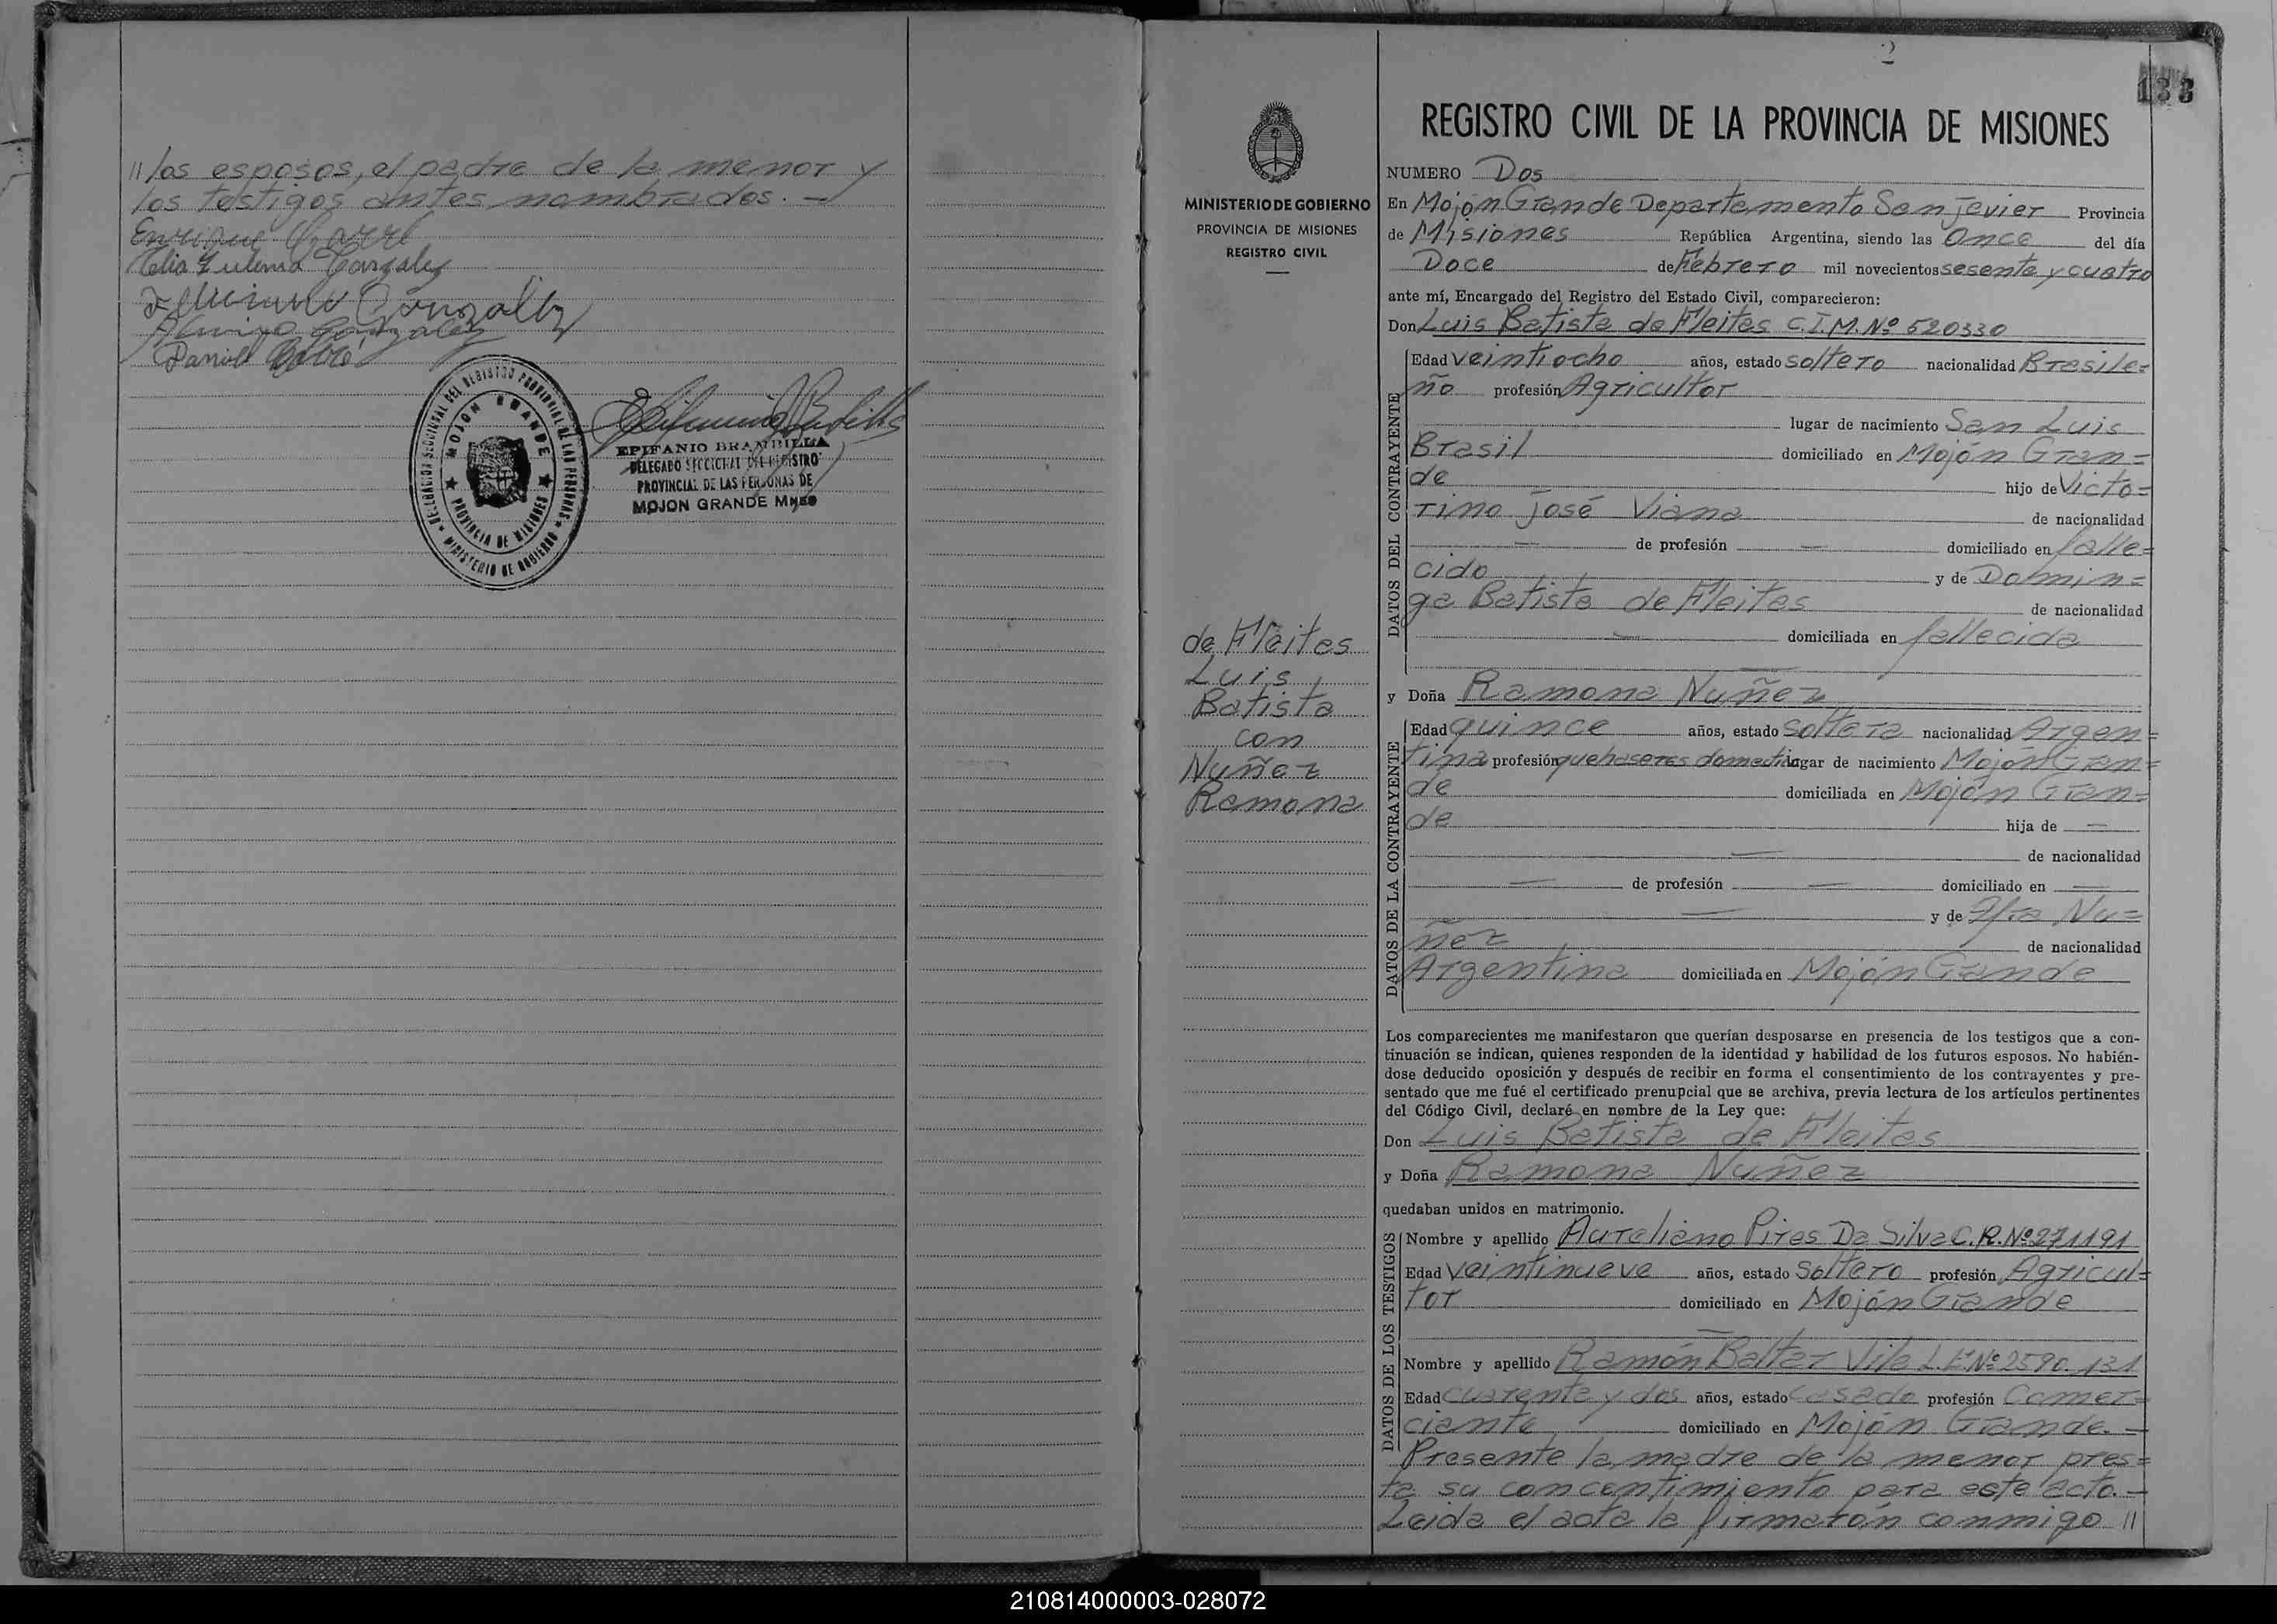 " los esposos, el padre de la menor y
los testigos antes nombrados. —
Enrique
Gonzalez
Gonzalez
Gonzalez
Daniel
DELEGACION SECCIONAL DEL REGISTRO PROVINCIAL DE LAS PERSONAS
MINISTERIO DE GOBIERNO
MOJON GRANDE
PROVINCIA DE MISIONES
EPIFANIO BRAMBILLA
DELEGADO SECCIONAL DEL REGISTRO
PROVINCIAL DE LAS PERSONAS DE
MOJON GRANDE MNES
MINISTERIO DE GOBIERNO
PROVINCIA DE MISIONES
REGISTRO CIVIL
de Fleites
Luis
Batista
con
Nuñez
Ramona
2
133
REGISTRO CIVIL DE LA PROVINCIA DE MISIONES
NUMERO Dos
En Mojón Grande Departamento San Javier Provincia
de Misiones República Argentina, siendo las Once del día
Doce de Febrero mil novecientos sesenta y cuatro
ante mí, Encargado del Registro del Estado Civil, comparecieron:
Don Luis Batista de Fleites C.I.M. Nº 520330
DATOS DEL CONTRAYENTE
Edad veintiocho años, estado soltero nacionalidad Brasile=
ño profesión Agricultor
lugar de nacimiento San Luis
Brasil domiciliado en Mojón Gran=
de hijo de Victo=
rino José Viana de nacionalidad
— de profesión — domiciliado en falle=
cido y de Domin=
ga Batista de Fleites de nacionalidad
— domiciliada en fallecida
y Doña Ramona Nuñez
DATOS DE LA CONTRAYENTE
Edad quince años, estado soltera nacionalidad Argen=
tina profesión quehaseres domesti lugar de nacimiento Mojón Gran=
de domiciliada en Mojón Gran=
de hija de —
— de nacionalidad
— de profesión — domiciliado en —
— y de Nu=
ñez de nacionalidad
Argentina domiciliada en Mojón Grande
Los comparecientes me manifestaron que querían desposarse en presencia de los testigos que a con-
tinuación se indican, quienes responden de la identidad y habilidad de los futuros esposos. No habién-
dose deducido oposición y después de recibir en forma el consentimiento de los contrayentes y pre-
sentado que me fué el certificado prenupcial que se archiva, previa lectura de los artículos pertinentes
del Código Civil, declaré en nombre de la Ley que:
Don Luis Batista de Fleites
y Doña Ramona Nuñez
quedaban unidos en matrimonio.
DATOS DE LOS TESTIGOS
Nombre y apellido Aureliano Pires Da Silva C.R. Nº 271191
Edad veintinueve años, estado Soltero profesión Agricul=
tor domiciliado en Mojón Grande
Nombre y apellido Ramón Balter Vila L.E. Nº 2590.131
Edad cuarenta y dos años, estado casado profesión Comer=
ciante domiciliado en Mojón Grande. —
Presente la madre de la menor pres=
ta su concentimiento para este acto. —
Leida el acta la firmarón conmigo "
210814000003-028072